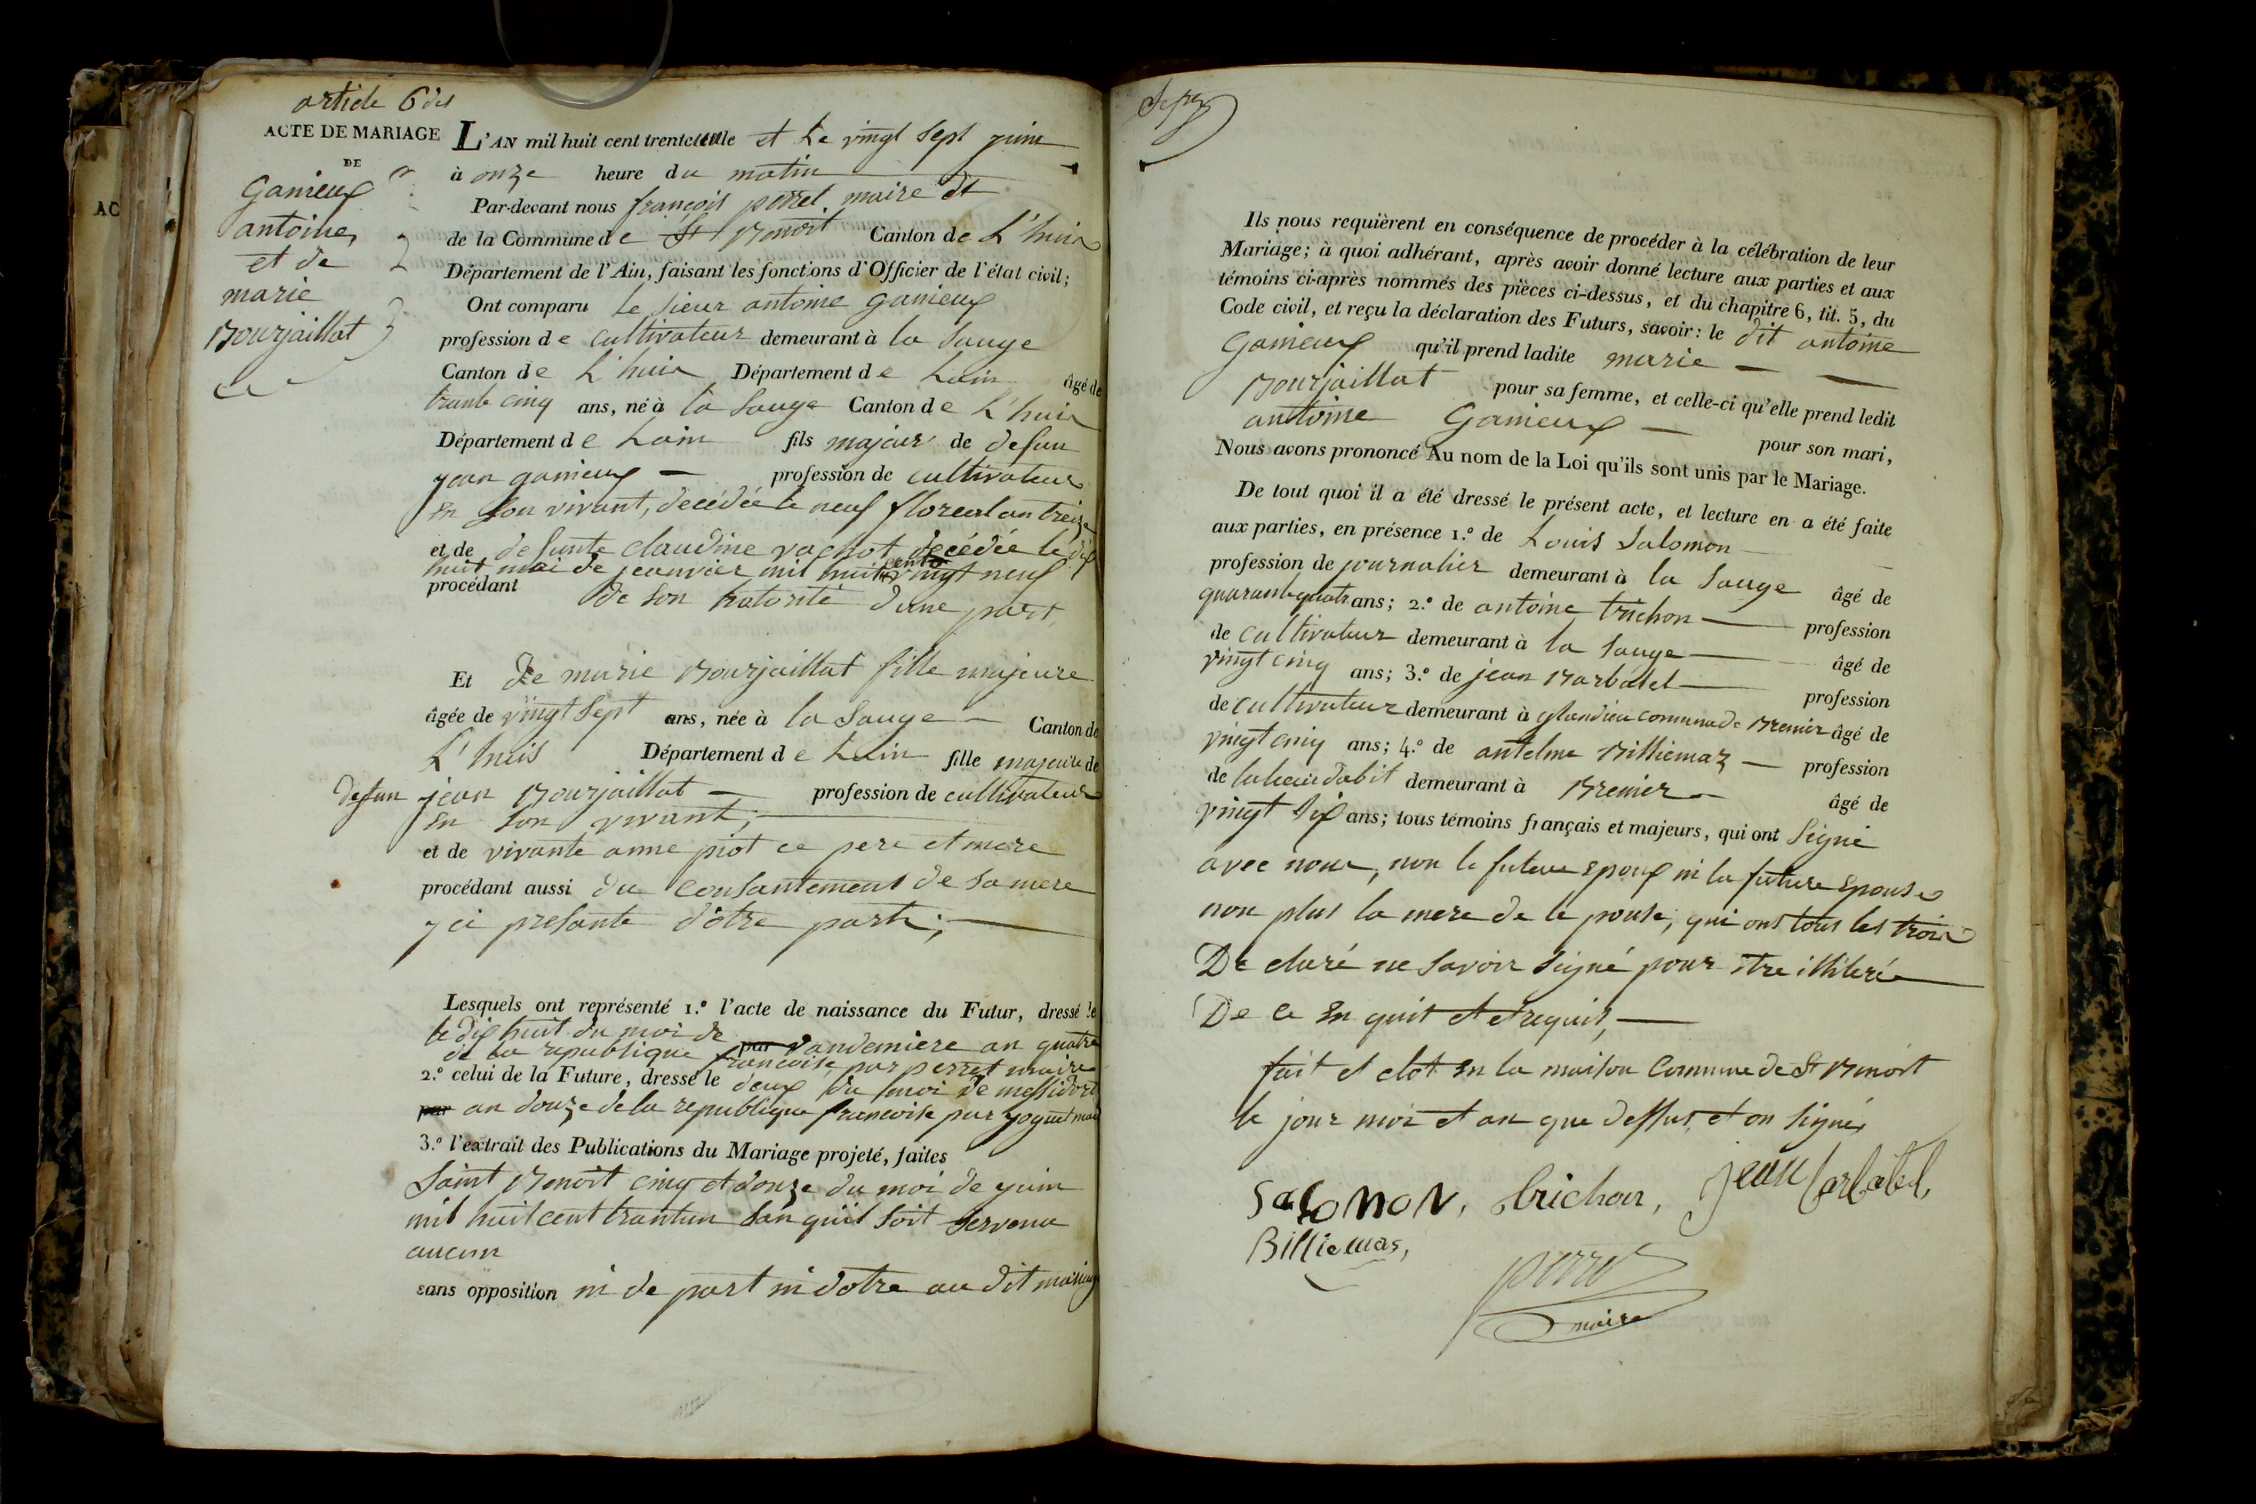 article 6
ACTE DE MARIAGE
DE
Ganieux
antoine
et de
marie
Bourjaillat
L'AN mil huit cent trente et Le vingt Sept juin
à onze heure du matin
Par-devant nous françois perret maire de
de la Commune de St Benoit Canton de L'huis
Département de l'Ain, faisant les fonctions d'Officier de l'état civil;
Ont comparu Le sieur antoine ganieux
profession de cultivateur demeurant à la Sauge
Canton de L'huis Département de Lain âgé de
trante cinq ans, né à la Sauge Canton de L'huis
Département de Lain fils majeur de defun
jean ganieux profession de cultivateur
en son vivant, decédée le neuf floreal an treize
et de defunte claudine vachot decédée le dix
huit moi de jeanvier mil huit cent vingt neuf
procédant de son hutorité d'une part,
Et De marie Bourjaillat fille majeure
âgée de vingt Sept ans, née à la Sauge Canton de
L'huis Département de Lain fille majeure de
defun jean Bourjaillat profession de cultivateur
en son vivant;
et de vivante anne piot ce pere et mere
procédant aussi du consantement de sa mere
y ci presante d'ôtre part;
Lesquels ont représenté 1.º l'acte de naissance du Futur, dressé le
le dix huit du moi de
par vandemiere an quatre
de la republique francoise par perret maire
2.º celui de la Future, dressé le deux du moi de messidor
par an douze de la republique francoise par yoguet
3.º l'extrait des Publications du Mariage projeté, faites
Saint Benoit cinq et douze du moi de juin
mil huit cent trantun san quil soit servenu
aucun
sans opposition ni de part ni d'otre au dit mariage
Ils nous requièrent en conséquence de procéder à la célébration de leur
Mariage; à quoi adhérant, après avoir donné lecture aux parties et aux
témoins ci-après nommés des pièces ci-dessus, et du chapitre 6, tit. 5, du
Code civil, et reçu la déclaration des Futurs, savoir: le dit antoine
Ganieux qu'il prend ladite marie
Bourjaillat pour sa femme, et celle-ci qu'elle prend ledit
antoine Ganieux pour son mari,
Nous avons prononcé Au nom de la Loi qu'ils sont unis par le Mariage.
De tout quoi il a été dressé le présent acte, et lecture en a été faite
aux parties, en présence 1.º de Louis Salomon
profession de journalier demeurant à la Sauge âgé de
quarante quatr ans; 2.º de antoine trichon profession
de cultivateur demeurant à la Sauge âgé de
vingt cinq ans; 3.º de jean Barbatel profession
de cultivateur demeurant à glandieu commune de Brenier âgé de
vingt cinq ans; 4.º de antelme Billiemaz profession
de demeurant à Brenier âgé de
vingt Six ans; tous témoins français et majeurs, qui ont Signé
avec nous, non le future epoux ni la future epouse
non plus la mere de le pouse, qui ont tous les trois
De claré ne savoir signé pour etre illiteré
De ce en quit et et requis,
fait et clot en la maison Commune de St Benoit
le jour moi et an que dessus et on signé,
Salomon, trichon, jean barbatel,
Billiemas,
perret
maire